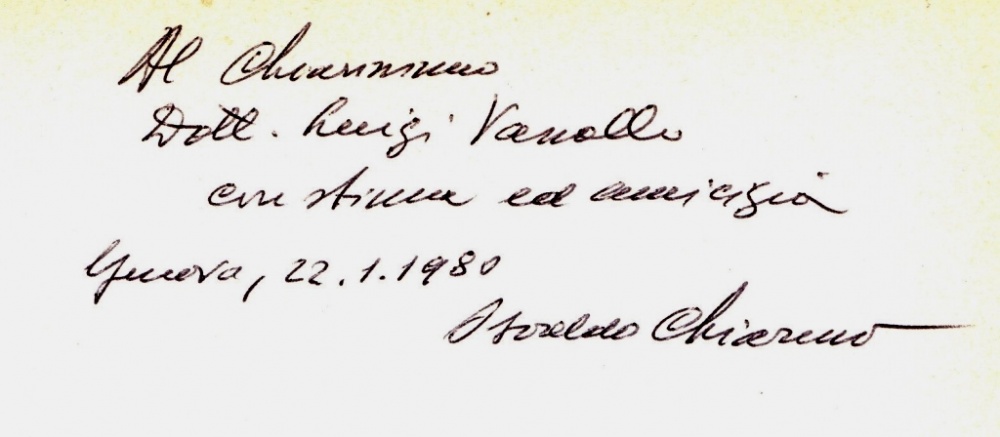 Al Chiarissimo
Dott. Luigi
con stima ed amicizia
Genova, 22.1.1980